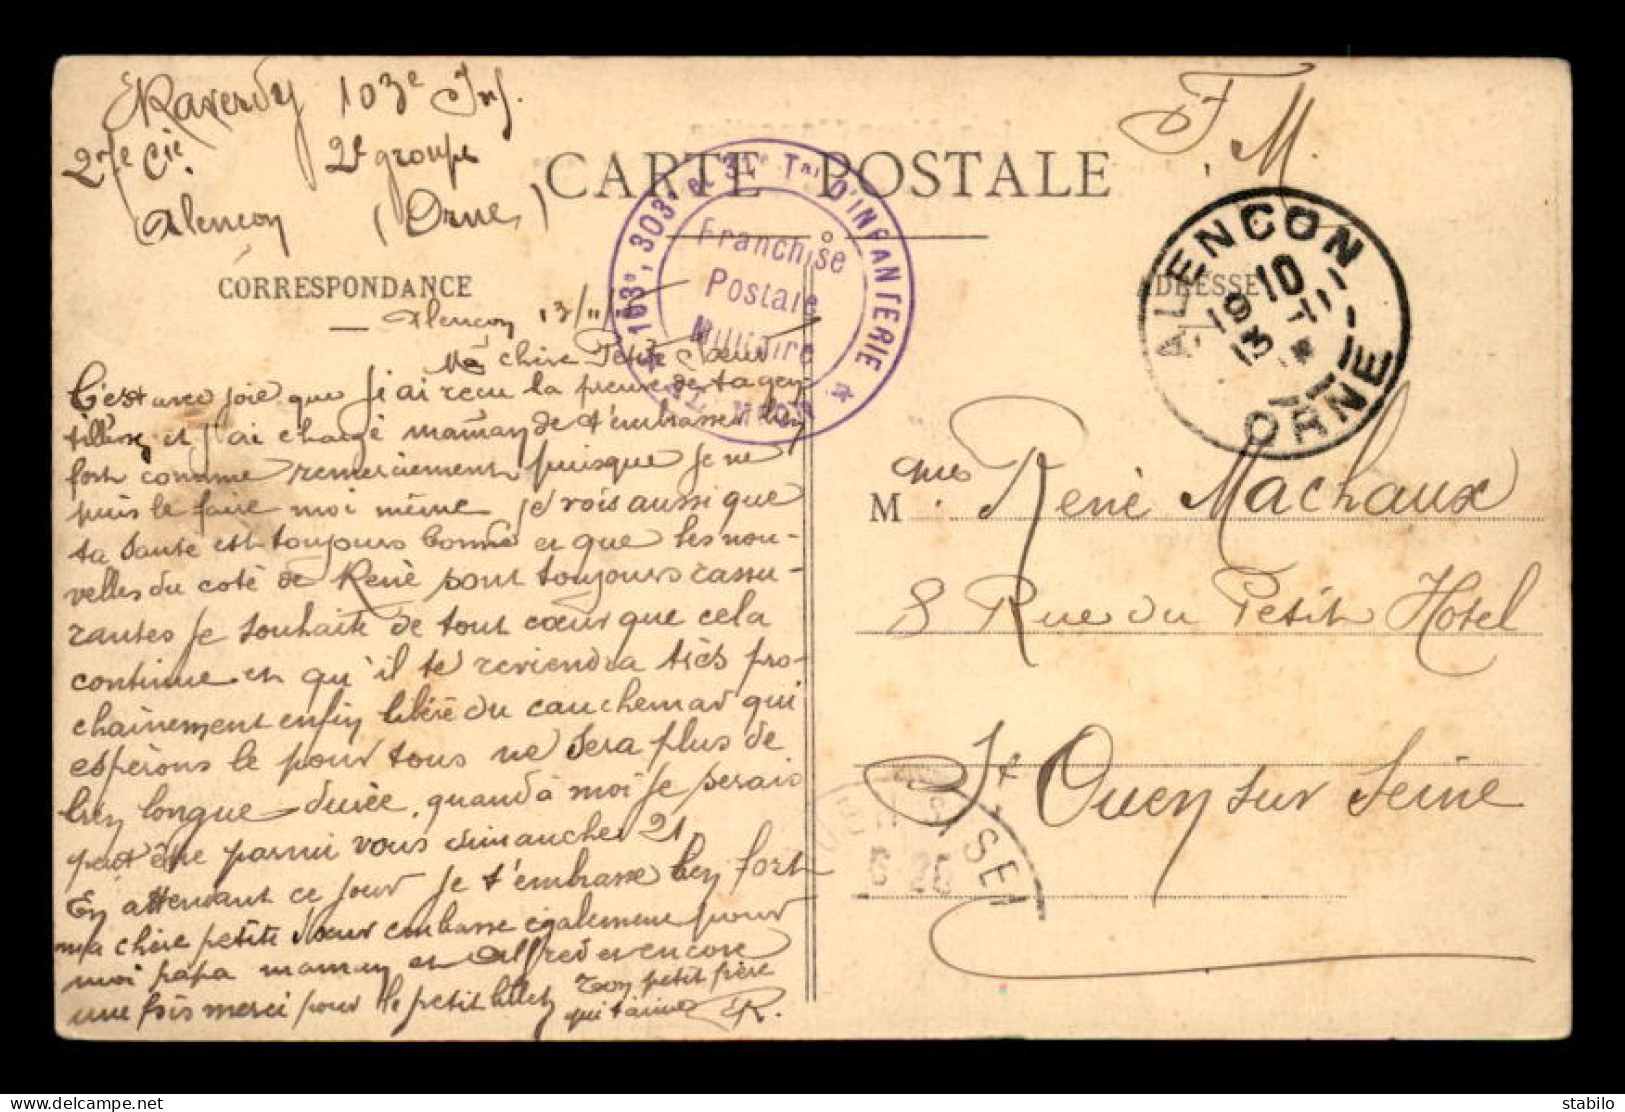 Raverdy 103e Inf.
27e Cie. 2e groupe
Alençon (Orne)
F.M.
CARTE POSTALE
103e, 303e et 31e Tal D'INFANTERIE
Franchise
Postale
Militaire
ALENCON
ALENCON
10
19
13 - 11
ORNE
CORRESPONDANCE
ADRESSE
Alençon 13/11/
Ma chère Petite Sœur
C'est avec joie que j'ai reçu la preuve de ta gen-
tillesse et j'ai chargé maman de t'embrasser bien
fort comme remerciement puisque je ne
puis le faire moi même je vois aussi que
ta santé est toujours bonne et que les nou-
velles du coté de René sont toujours rassu-
rantes je souhaite de tout cœur que cela
continue et qu'il te reviendra très pro-
chainement enfin libéré du cauchemar qui
espèrons le pour tous ne sera plus de
bien longue durée, quand à moi je serais
peut être parmi vous dimanche 21
En attendant ce jour je t'embrasse bien fort
ma chère petite sœur embrasse également pour
moi papa maman et Alfred et encore
une fois merci pour le petit billet Ton petit frère
qui t'aime R.
M me René Machaux
8 Rue du Petit Hotel
St Ouen sur Seine
6 25
stabilo